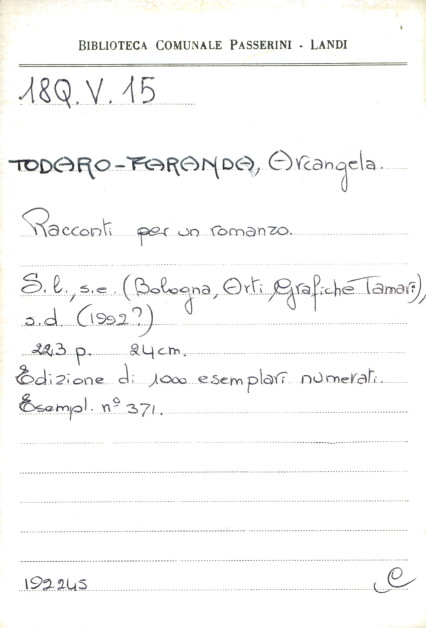 BIBLIOTECA COMUNALE PASSERINI - LANDI
18Q.V.15
TODARO-FARANDA, Arcangela.
Racconti per un romanzo.
S.l., s.e. (Bologna, Arti Grafiche Tamari),
s.d (1992?)
223 p. 24cm.
Edizione di 1000 esemplari numerati.
Esempl. nº 371.
192245
C